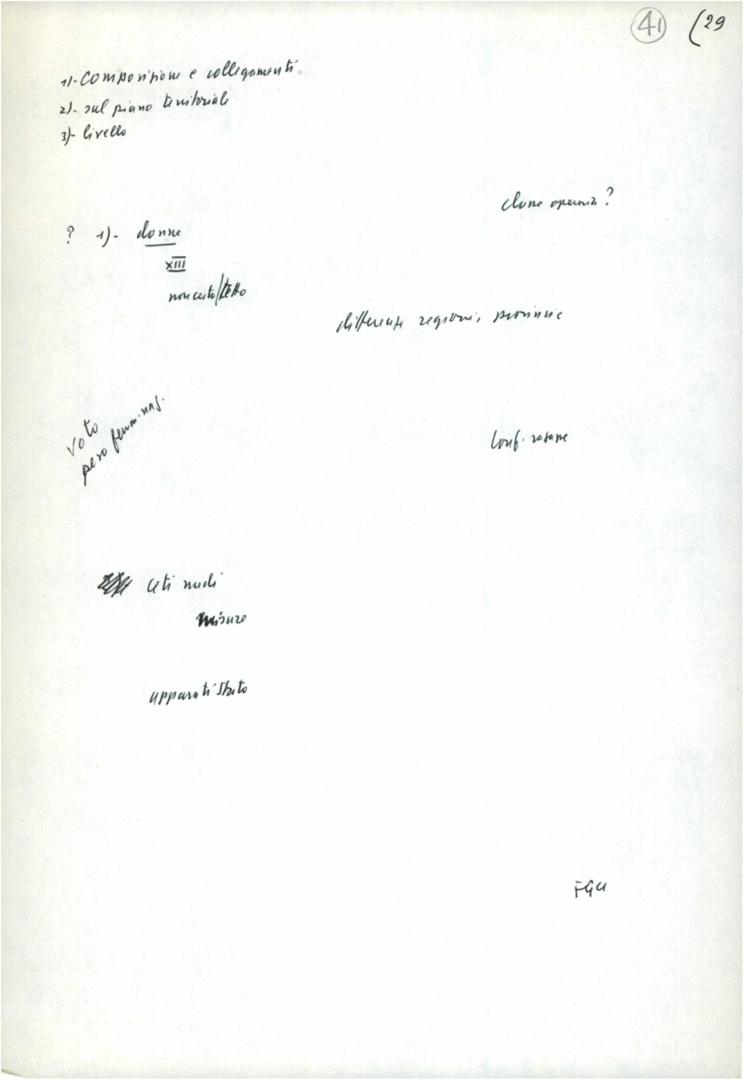 41 (29
1)- Composizione e collegamenti.
2)- sul piano territoriale
3)- livello
classe operaia ?
? 1)- donne
XIII
non certo/tetto
differenze regioni, provincie
Voto
però femm.
Conf.
ceti medi
misure
apparati Stato
FGCI